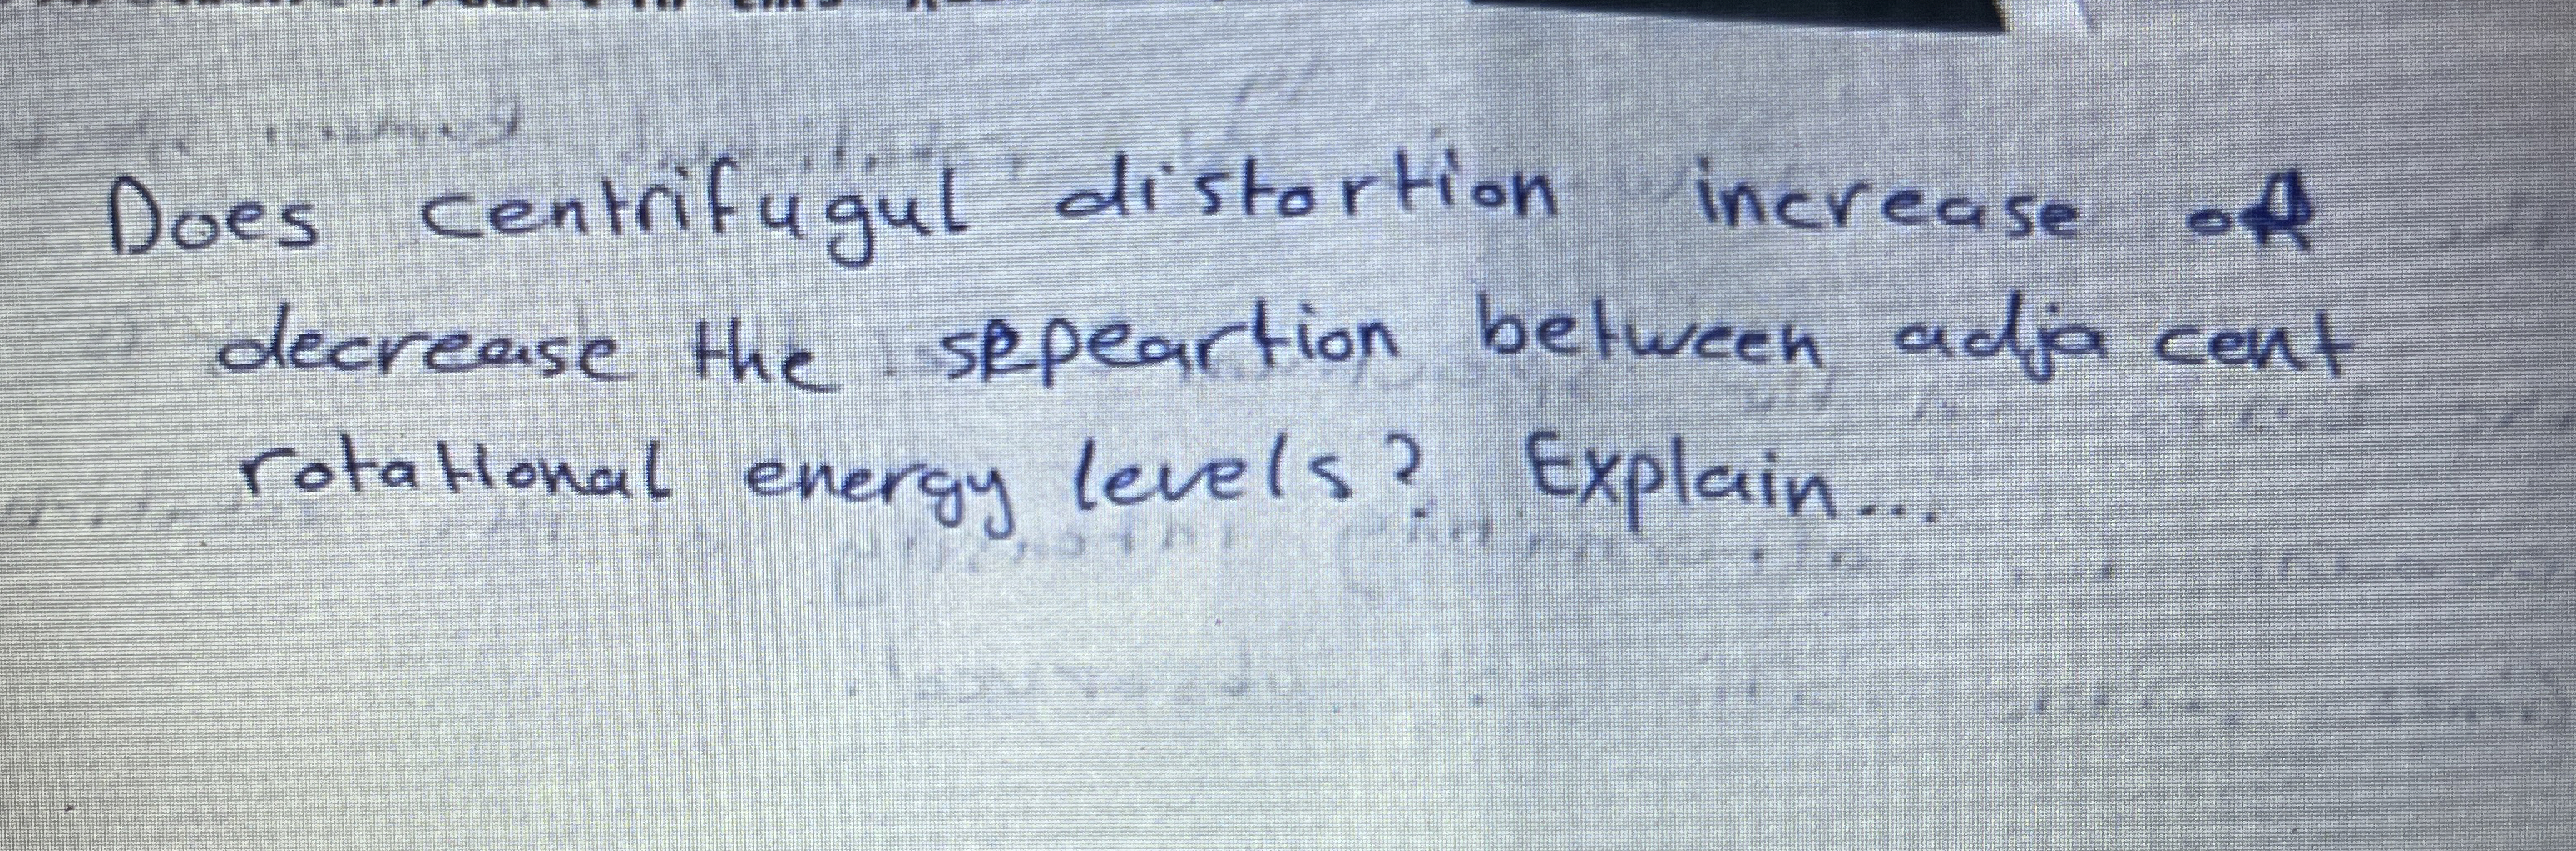 Does centrifugul distortion increase or
decrease the sepeartion between adja cent
rotational energy levels? Explain...